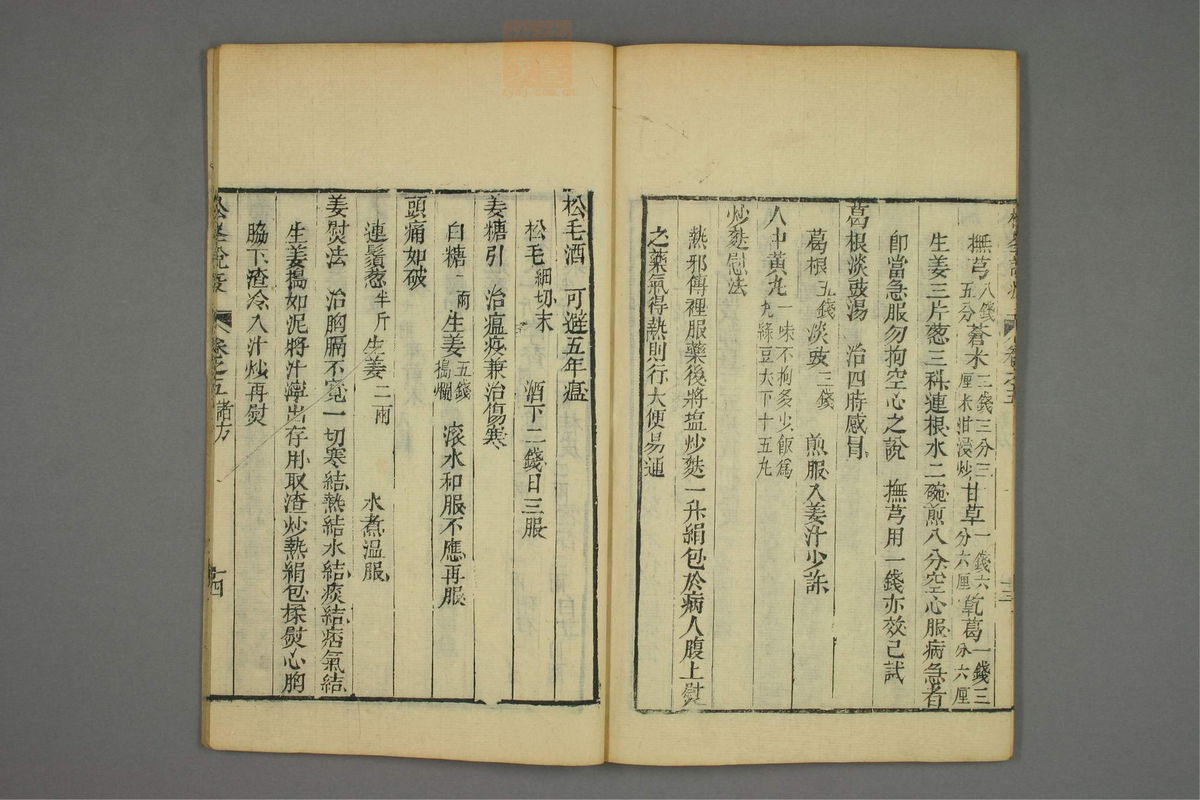 撫芎八錢五分蒼朮三錢三分三厘米泔浸炒甘草一錢六分六厘乾葛一錢三分六厘
生姜三片葱三科連根水二碗煎八分空心服病急者
卽當急服勿拘空心之說　撫芎用一錢亦效已試
葛根淡豉湯　治四時感冒
葛根五錢淡豉三錢　煎服入姜汁少許
人中黃丸一味不拘多少飯爲丸綠豆大下十五丸
炒麩慰法
熱邪傳裡服藥後將塩炒麩一升絹包於病人腹上熨
之藥氣得熱則行大便易通
松毛酒　可避五年瘟
松毛細切末　酒下二錢日三服
姜糖引　治瘟疫兼治傷寒
白糖一兩生姜五錢搗爛　滾水和服不應再服
頭痛如破
連鬚葱半斤生姜二兩　水煮溫服
姜熨法　治胸膈不寬一切寒結熱結水結痰結痞氣結
生姜搗如泥將汁濘出存用取渣炒熱絹包揉熨心胸
脇下渣冷入汁炒再熨
松峯說疫　卷之五諸方　十四